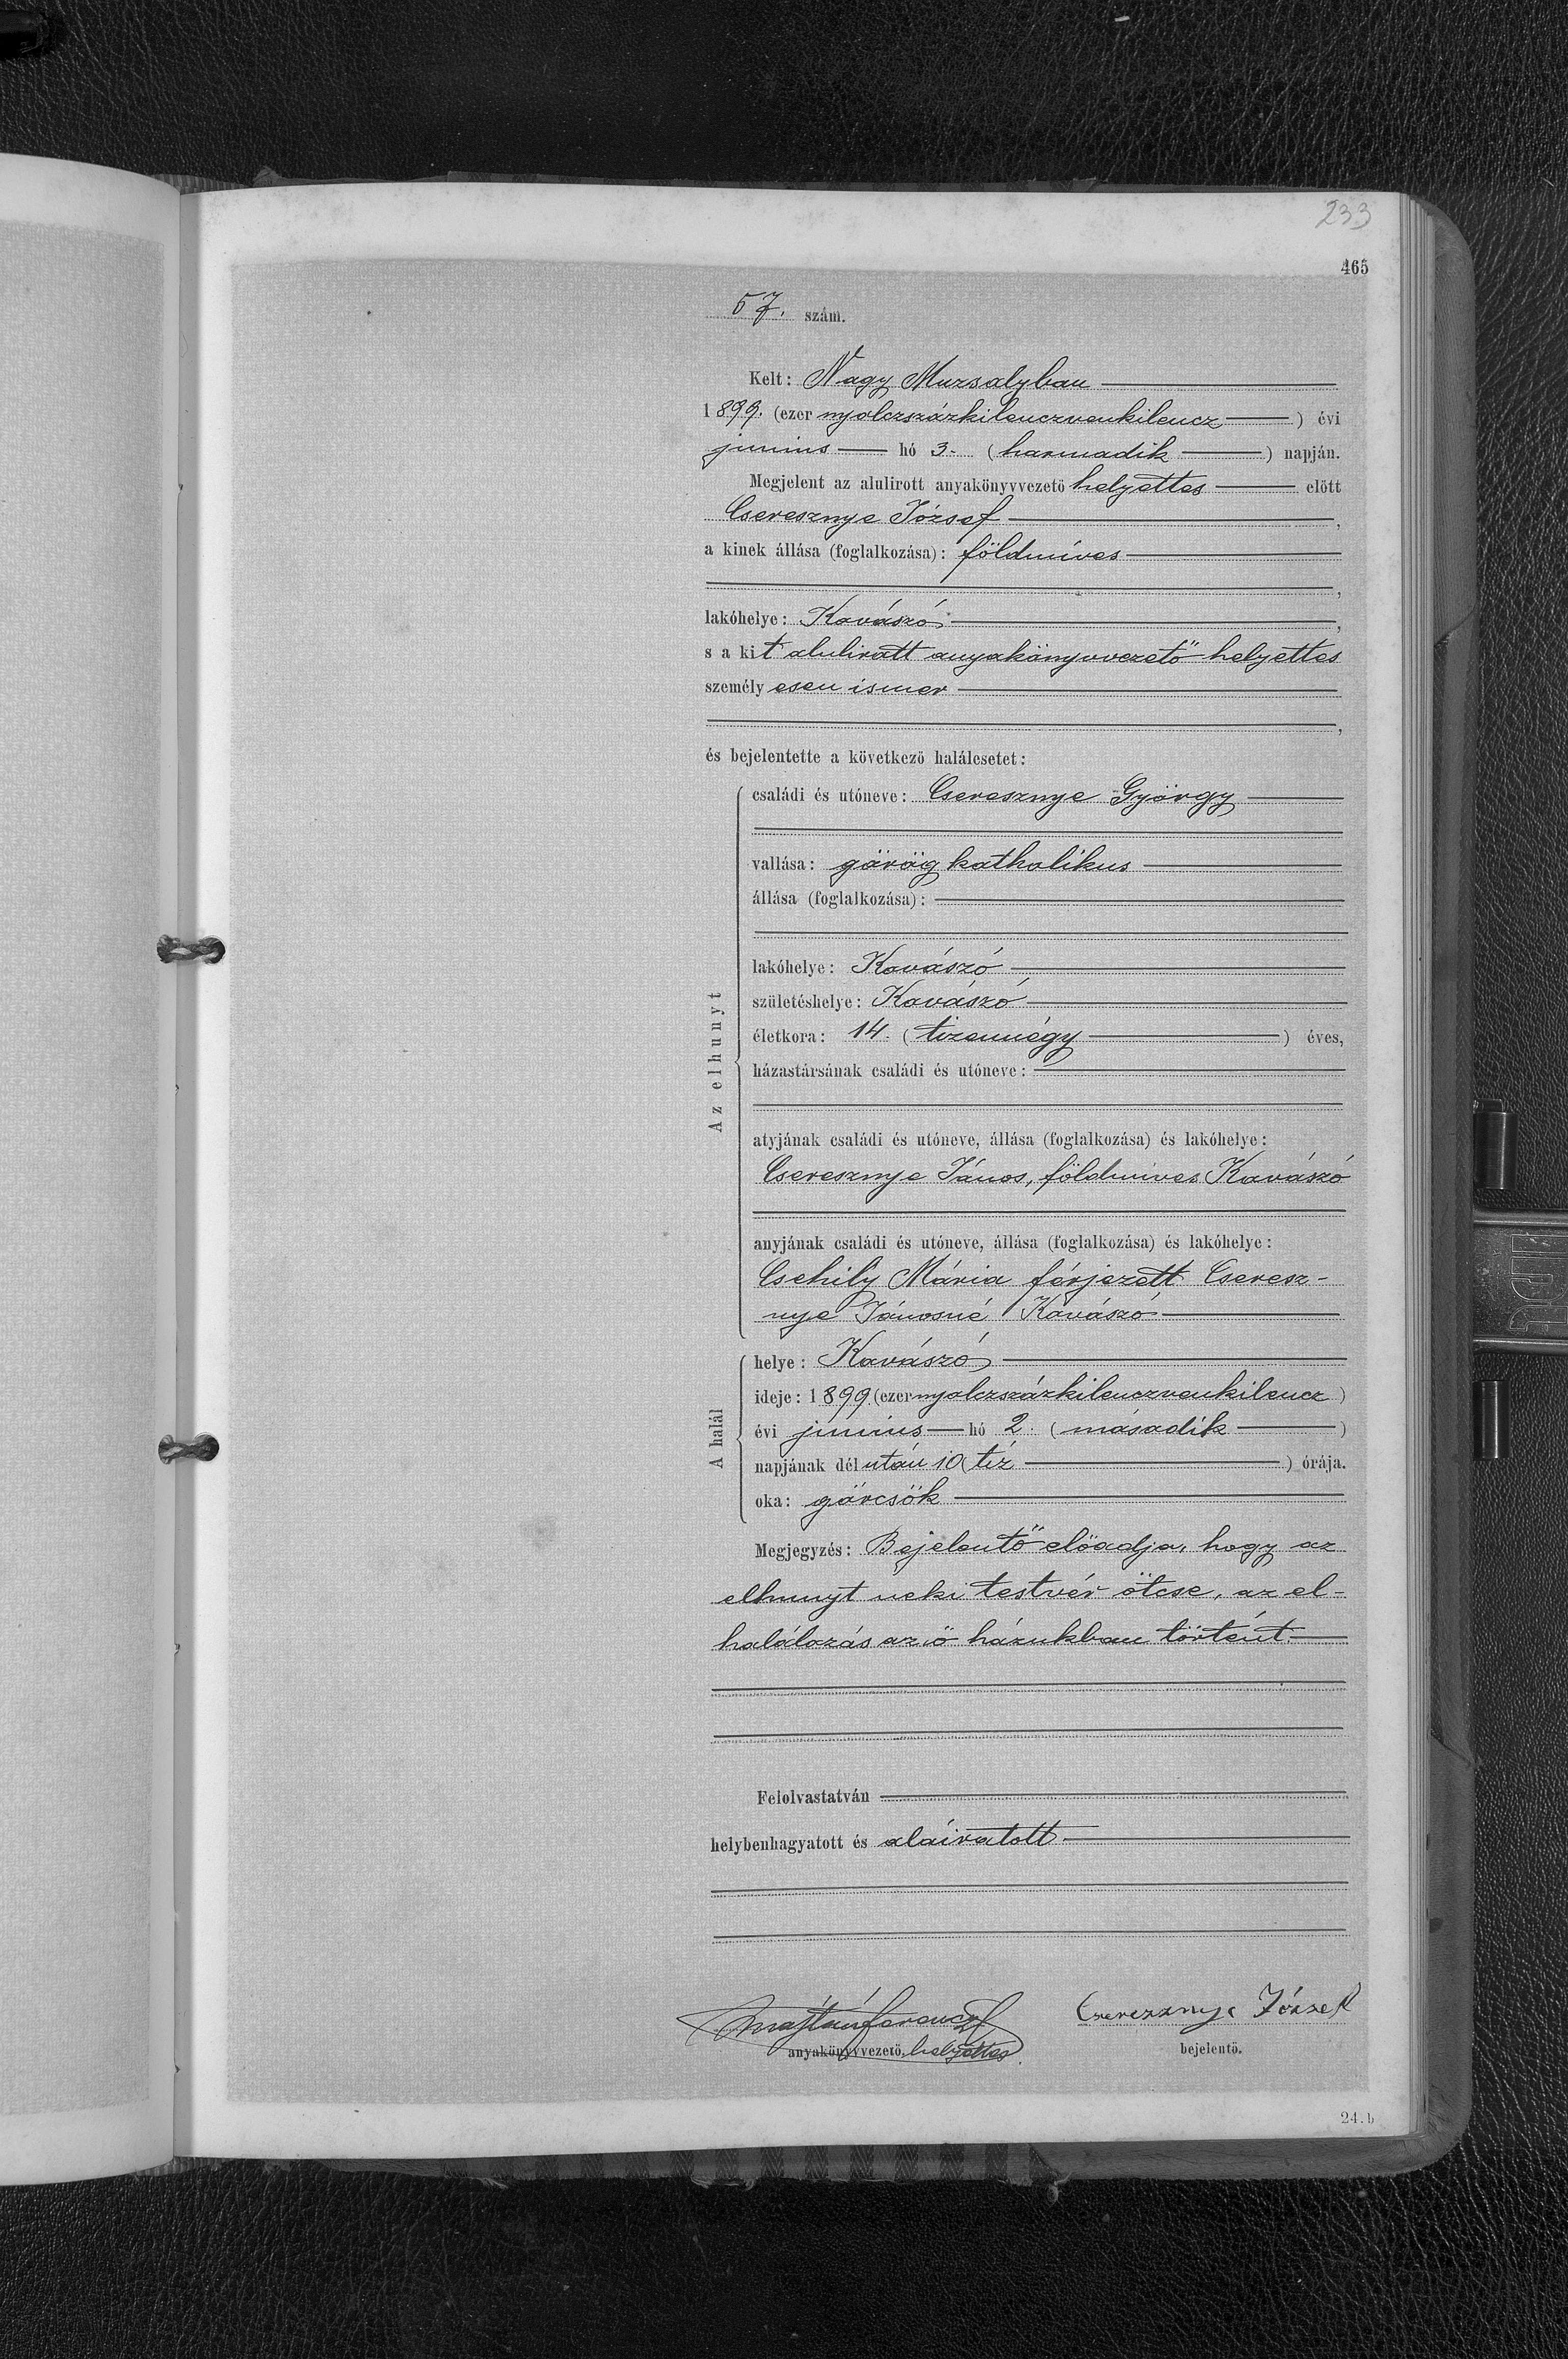 233
465
57. szám.
Kelt: Nagy Muzsalyban
1899. (ezer nyolczszázkilenczvenkilencz) évi
junius hó 3. (harmadik) napján.
Megjelent az alulirott anyakönyvvezetö helyettes elött
Cseresznye József,
a kinek állása (foglalkozása): földmíves
,
lakóhelye: Kovászó,
s a kit alulirott anyakönyvvezető helyettes
személyesen ismer
,
és bejelentette a következö halálesetet:
Az elhunyt
családi és utóneve: Cseresznye György
vallása: görög katholikus
állása (foglalkozása):
lakóhelye: Kovászó
születéshelye: Kovászó
életkora: 14. (tizennégy) éves,
házastársának családi és utóneve:
atyjának családi és utóneve, állása (foglalkozása) és lakóhelye:
Cseresznye János, földmíves Kovászó
anyjának családi és utóneve, állása (foglalkozása) és lakóhelye:
Csehily Mária férjezett Cseresz-
nye Jánosné Kovászó
A halál
helye: Kovászó
ideje: 1899 (ezernyolczszázkilenczvenkilencz)
évi junius hó 2. (második)
napjának délután 10 (tíz) órája.
oka: görcsök
Megjegyzés: Bejelentő előadja, hogy az
elhunyt neki testvér ötcse, az el-
halálozás az ő házukban történt.
Felolvastatván
helybenhagyatott és aláiratott
Cserezznye József
anyakönyvvezetö. helyettes
bejelentö.
24.b